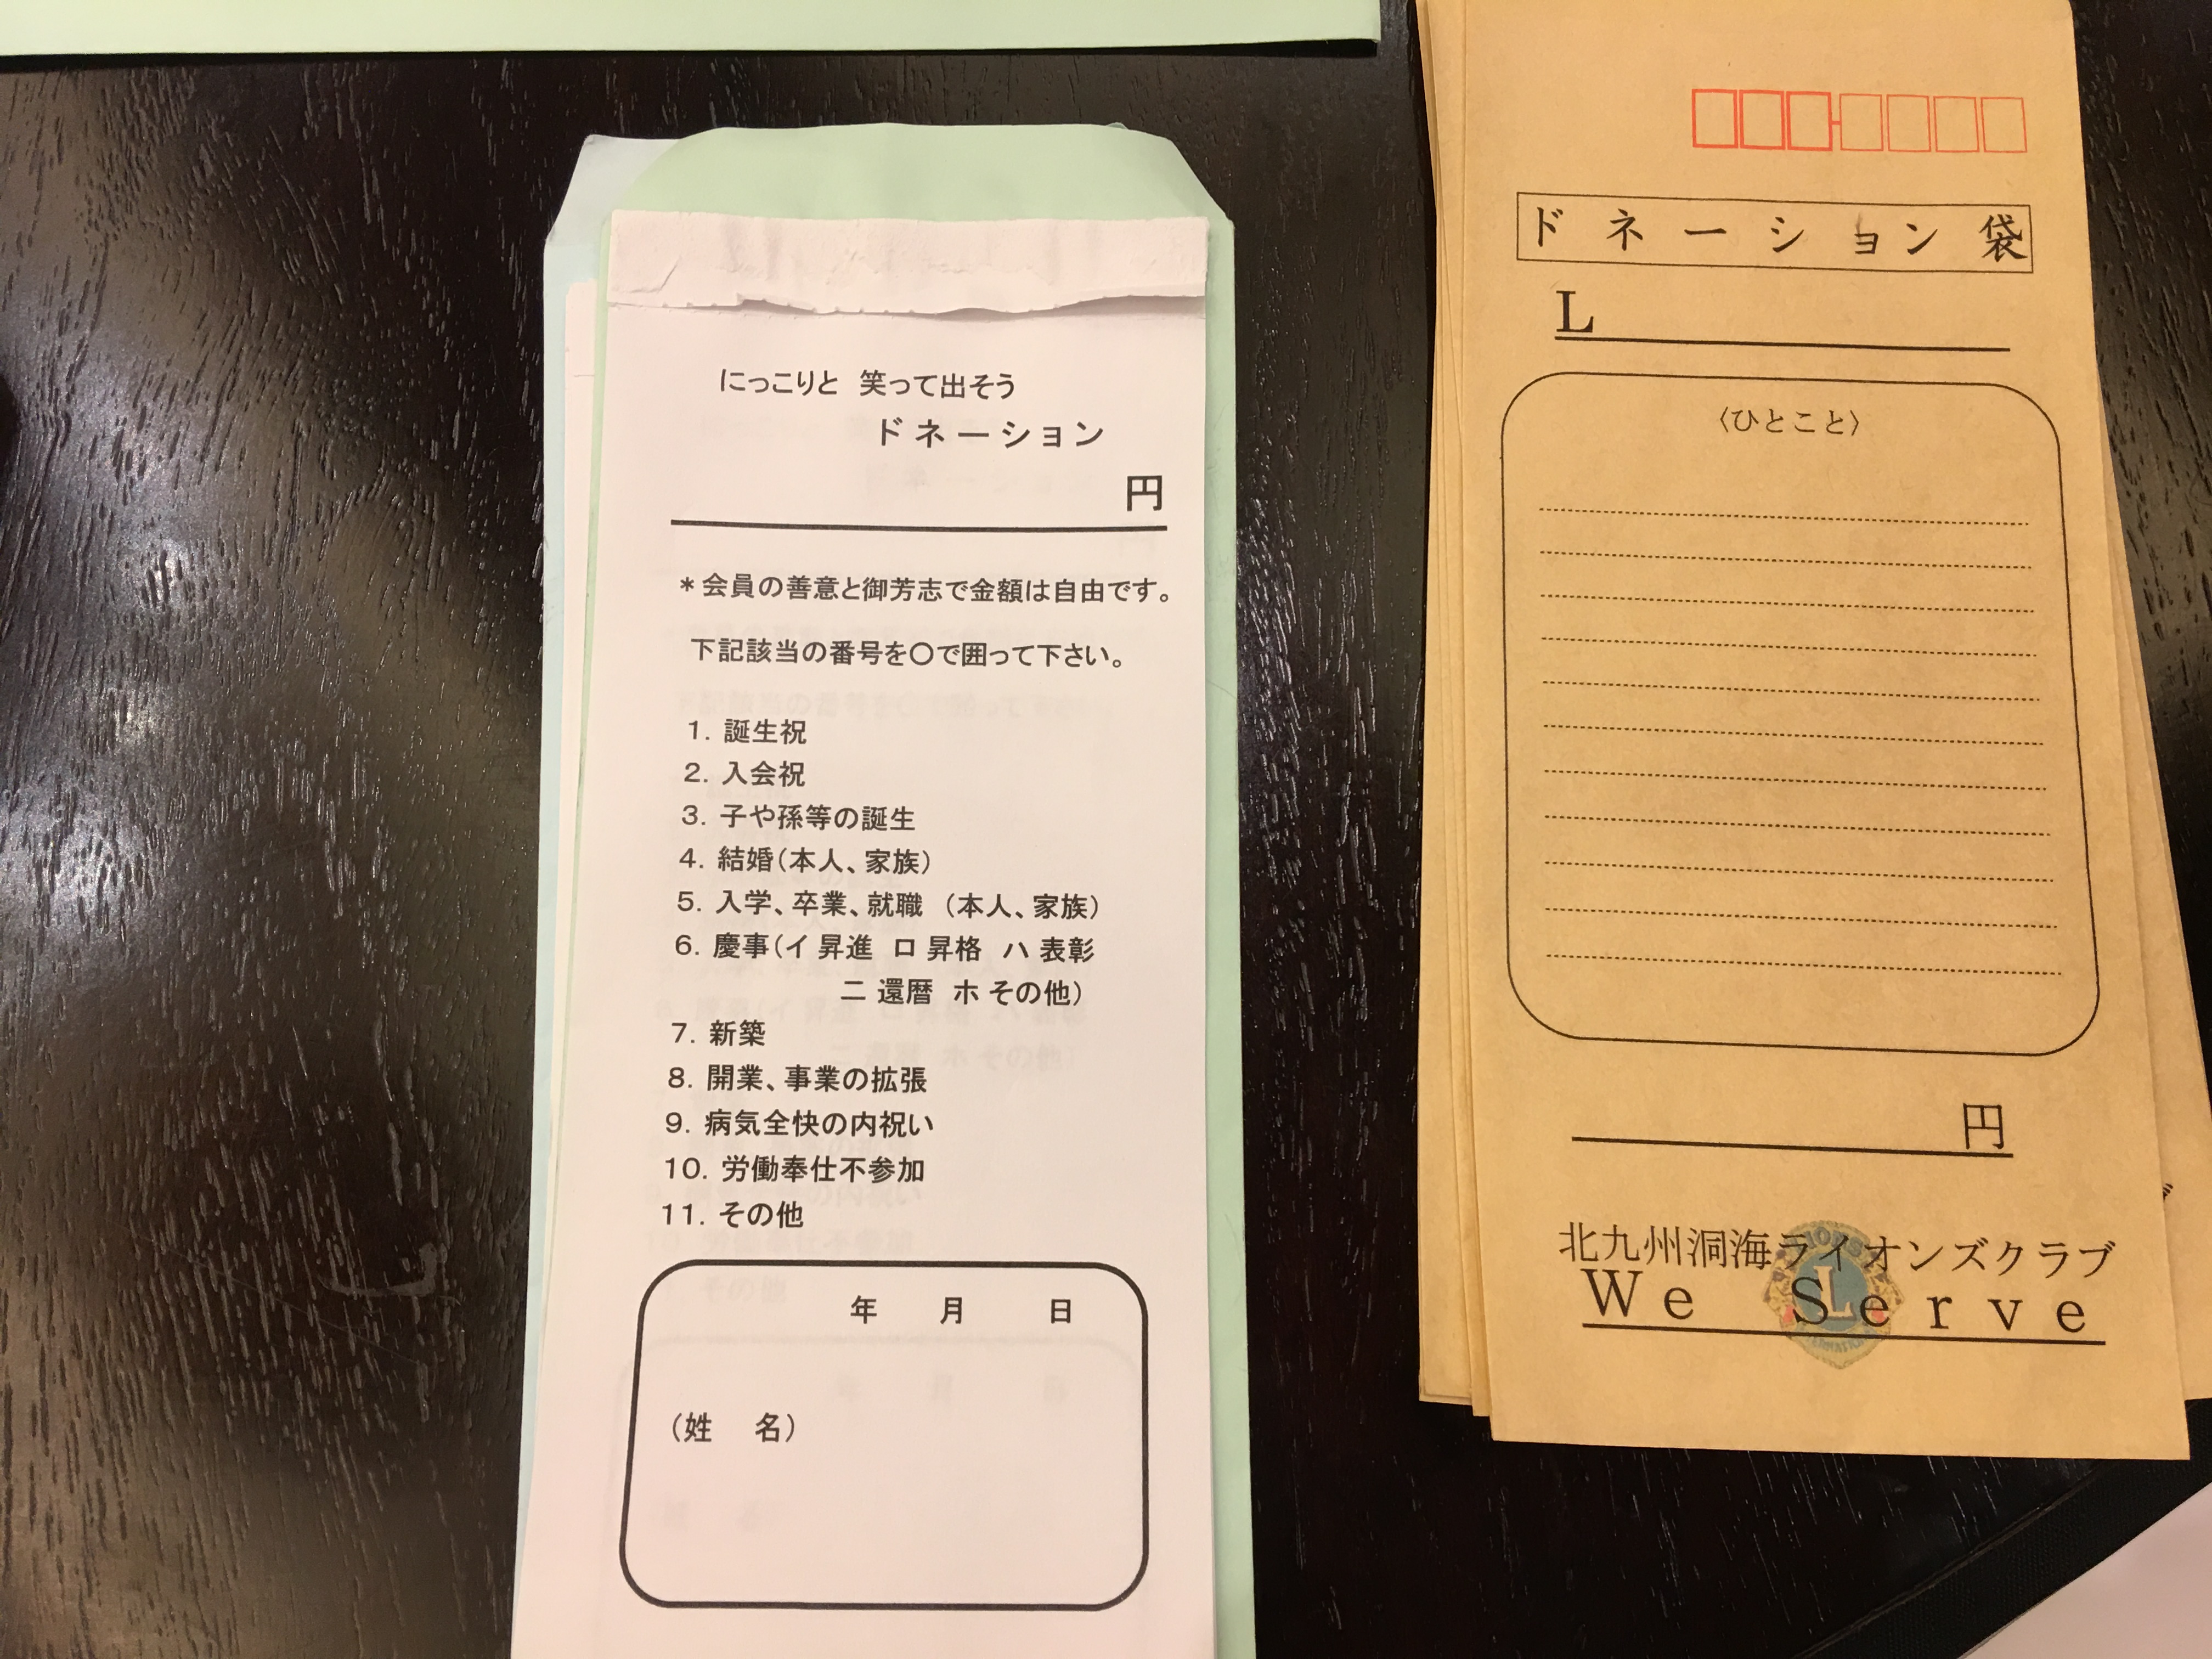 にっこりと 笑って出そう
ドネーション
円
*会員の善意と御芳志で金額は自由です。
下記該当の番号を〇で囲って下さい。
1. 誕生祝
2. 入会祝
3. 子や孫等の誕生
4. 結婚(本人、家族)
5. 入学、卒業、就職 (本人、家族)
6. 慶事(イ 昇進 ロ 昇格 ハ 表彰
ニ 還暦 ホ その他)
7. 新築
8. 開業、事業の拡張
9. 病気全快の内祝い
10. 労働奉仕不参加
11. その他
年 月 日
(姓 名)
ドネーション袋
L
〈ひとこと〉
円
北九州洞海ライオンズクラブ
We Serve